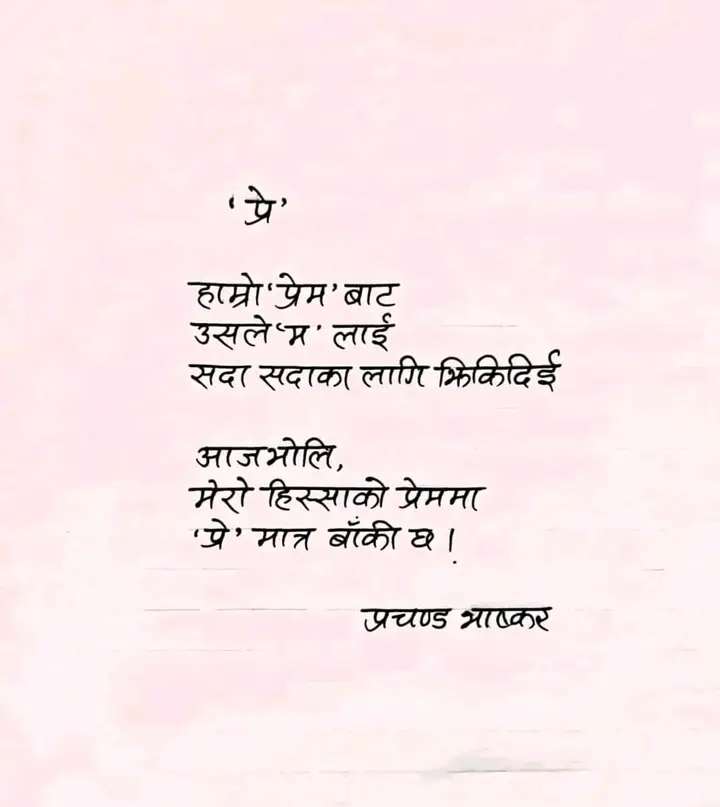 ‘प्रे’
हाम्रो ‘प्रेम’ बाट
उसले ‘म’ लाई
सदा सदाका लागि झिकिदिई
आजभोलि,
मेरो हिस्साको प्रेममा
‘प्रे’ मात्र बाँकी छ ।
प्रचण्ड भाष्कर